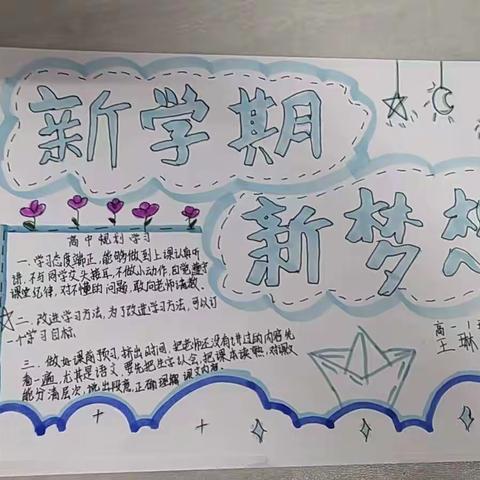 新学期
新梦想
高中规划学习
一、学习态度端正,能够做到上课认真听
讲,不与同学交头接耳,不做小动作,自觉遵守
课堂纪律,对不懂的问题,敢向老师请教。
二、改进学习方法,为了改进学习方法,可以订
一个学习目标
三、做好课前预习,挤出时间,把老师还没有讲过的内容先
看一遍,尤其是语文,要先把生字认会,把课本读熟,对课文
能分清层次,说出段意,正确理解课文内容。
高一
王琳